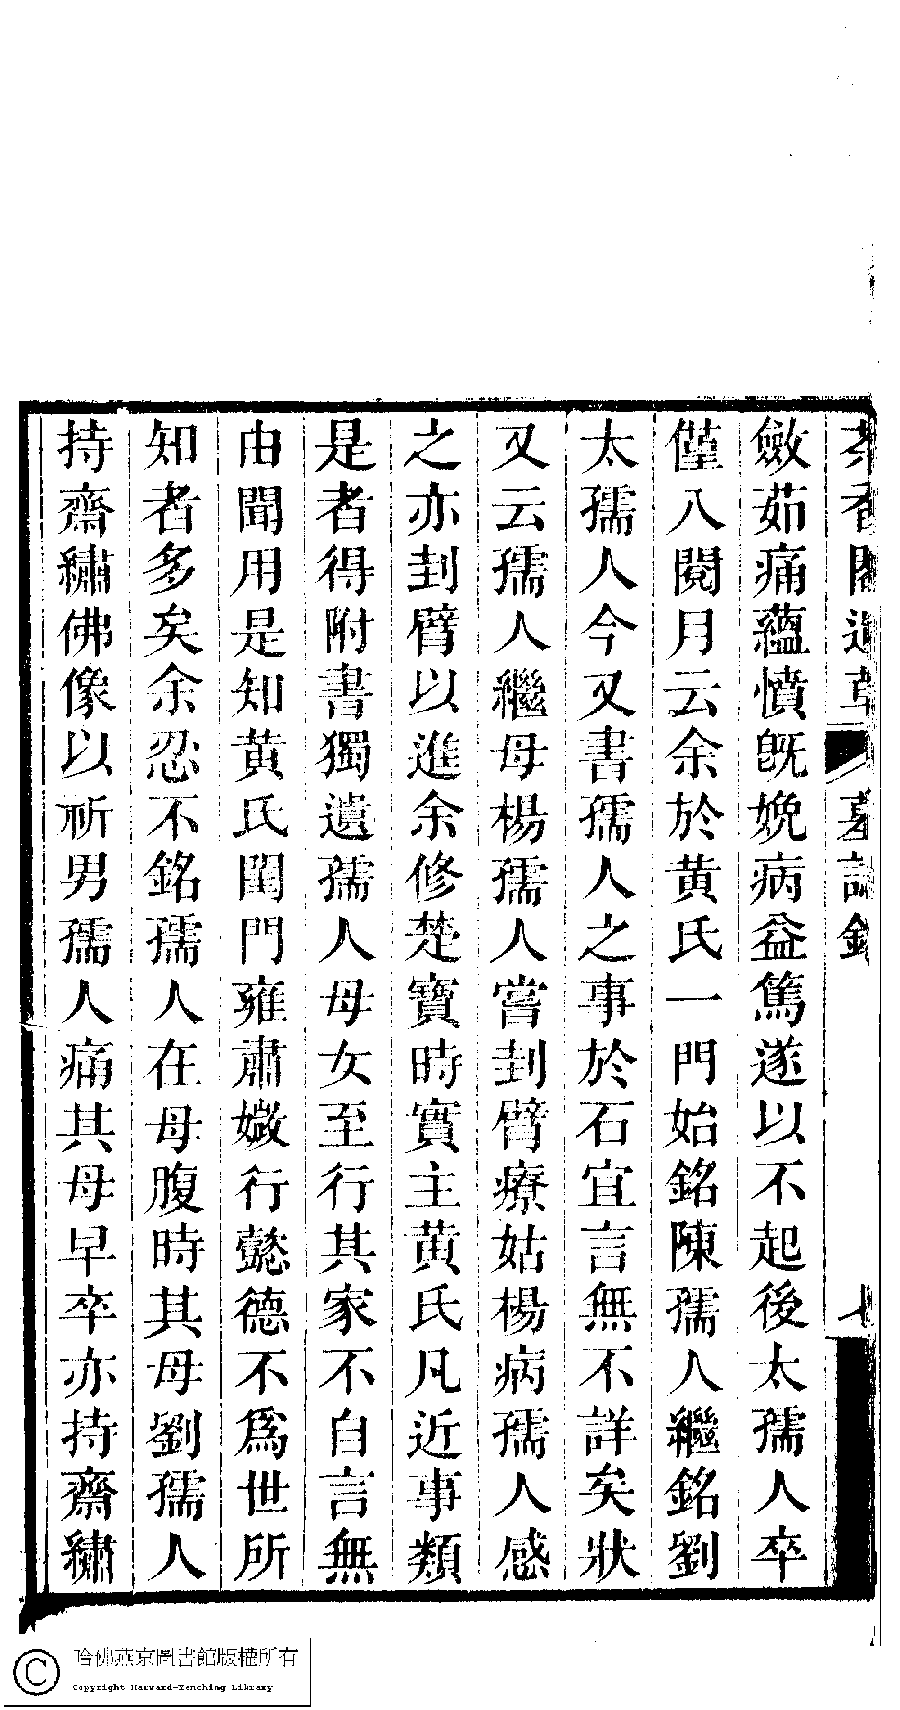 茶香閣遺草 墓誌銘 七
斂茹痛蘊憤旣娩病益篤遂以不起後太孺人卒
僅八閱月云余於黄氏一門始銘陳孺人繼銘劉
太孺人今又書孺人之事於石宜言無不詳矣狀
又云孺人繼母楊孺人嘗刲臂療姑楊病孺人感
之亦刲臂以進余修楚寶時實主黄氏凡近事類
是者得附書獨遺孺人母女至行其家不自言無
由聞用是知黄氏閨門雍肅媺行懿德不爲世所
知者多矣余忍不銘孺人在母腹時其母劉孺人
持齋繡佛像以祈男孺人痛其母早卒亦持齋繡
哈佛燕京圖書館版權所有
Copyright Harvard-Yenching Library